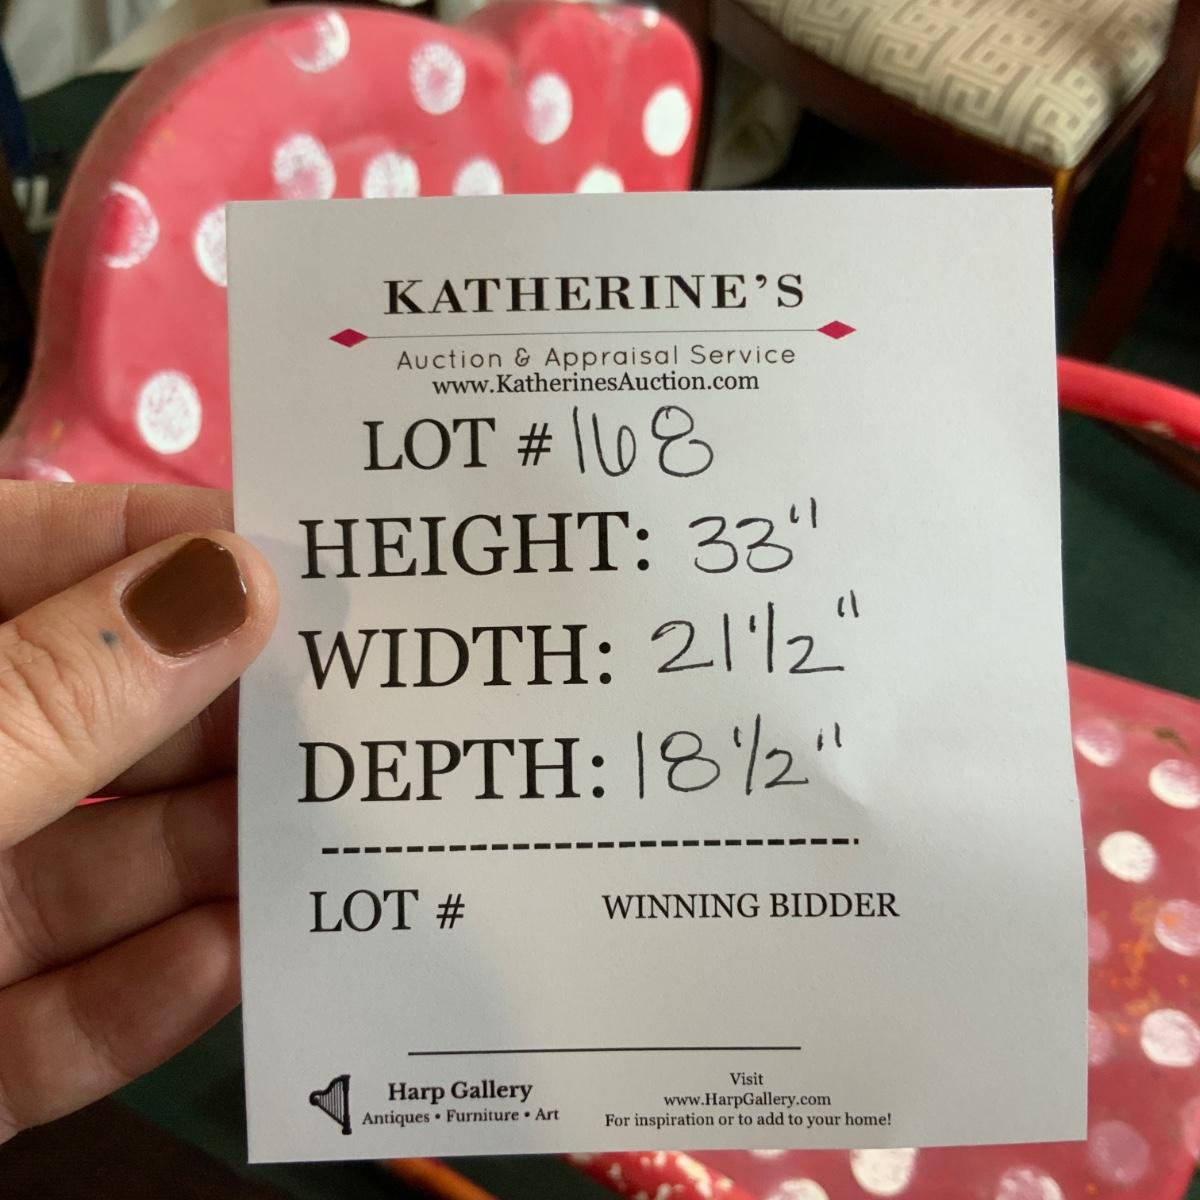 KATHERINE'S
Auction & Appraisal Service
www.KatherinesAuction.com
LOT # 168
HEIGHT: 33"
WIDTH: 21 1/2"
DEPTH: 18 1/2"
LOT # WINNING BIDDER
Harp Gallery
Antiques • Furniture • Art
Visit
www.HarpGallery.com
For inspiration or to add to your home!